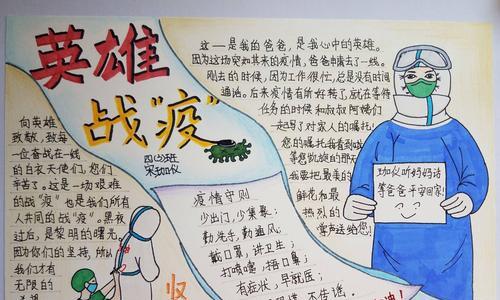 英雄
战“疫”
四(3)班
向英雄
致敬,致每
一位奋战在一线
的白衣天使们,您们
辛苦了。这是一场艰难
的战“疫”也是我们所有
人共同的战“疫”。黑夜
过后,是黎明的曙光,
因为你们的坚持,所以
我们才有
无限的
疫情守则
少出门,少集聚;
勤洗手,勤通风;
戴口罩,讲卫生;
打喷嚏,捂口鼻;
有症状,早就医;
不传谣。
坚
这一是我的爸爸,是我心中的英雄。
因为这场突如其来的疫情,爸爸申请去了一线。
刚去的时候,因为工作很忙,总是没有时间
通话。后来疫情有所好转了,就在等待
任务的时候和叔叔阿姨们
一起写了对家人的嘱托!
您的嘱托我看到啦
等您凯旋的那天
我要把最美的
鲜花和最
热烈的
掌声送给您!
听妈妈话
等爸爸平安回家!